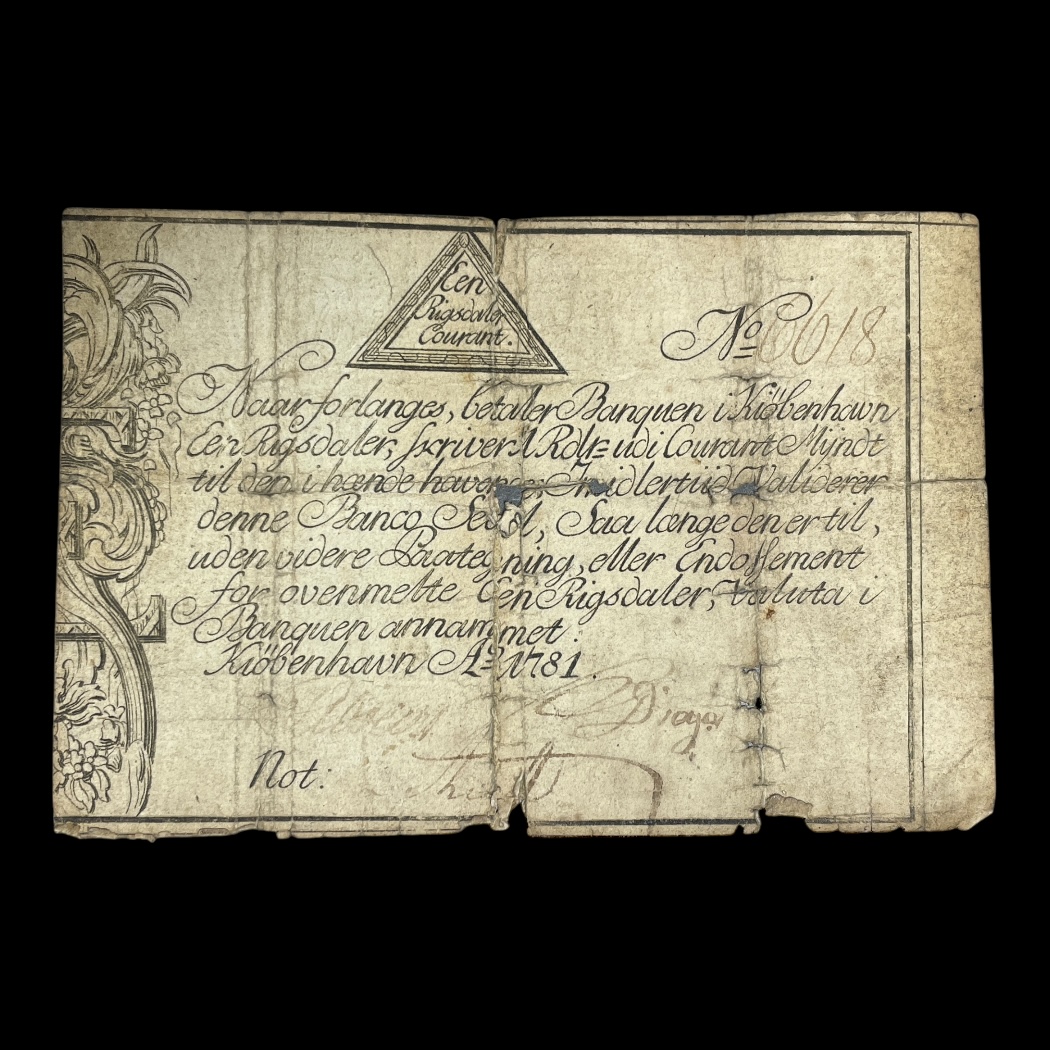 Een
Rigsdaler
Courant.
No 6618
Naar forlanges, betaler Banquen i Kiöbenhavn
Een Rigsdaler, skriver 1 Rdlr udi Courant Mÿndt
til den i hænde havende; Imidlertiid Validerer
denne Banco Sedel, Saa længe den er til,
uden videre Paategning, eller Endossement
for ovenmelte Een Rigsdaler, Valuta i
Banquen annammet.
Kiöbenhavn Ao 1781.
Not: